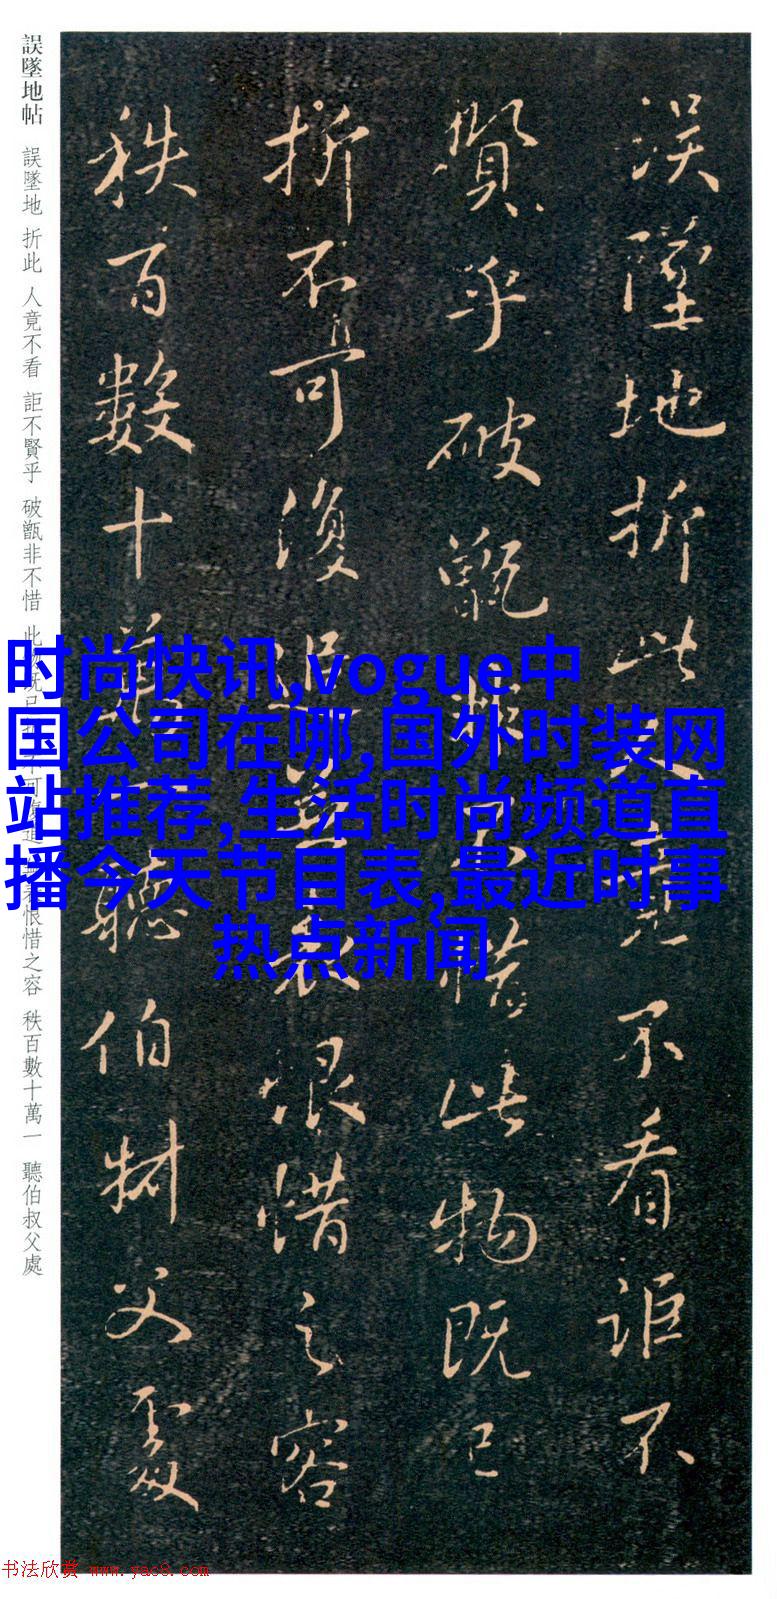 误墜地折此人竟不看詎不
賢乎破甑非不惜此物既已
折不可復追恨惜之容
秩百數十萬一聽伯叔父處
誤墜地帖 誤墜地 折此 人竟不看 詎不賢乎 破甑非不惜 此物既已折不可復追 恨惜之容 秩百數十萬一 聽伯叔父處
时尚快讯,vogue中
国公司在哪,国外时装网
站推荐,生活时尚频道直
播今天节目表,最近时事
热点新闻
书法欣赏 www.yac8.com